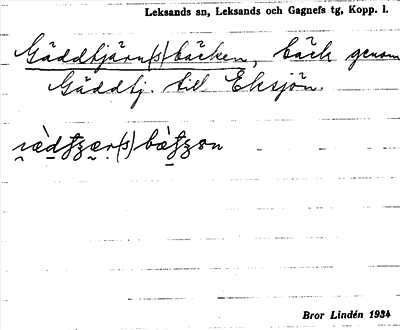 Leksands sn, Leksands och Gagnefs tg, Kopp. l.
Gäddtjärn(s)bäcken, bäck genom
Gäddtj. till Eksjön.
Bror Lindén 1934